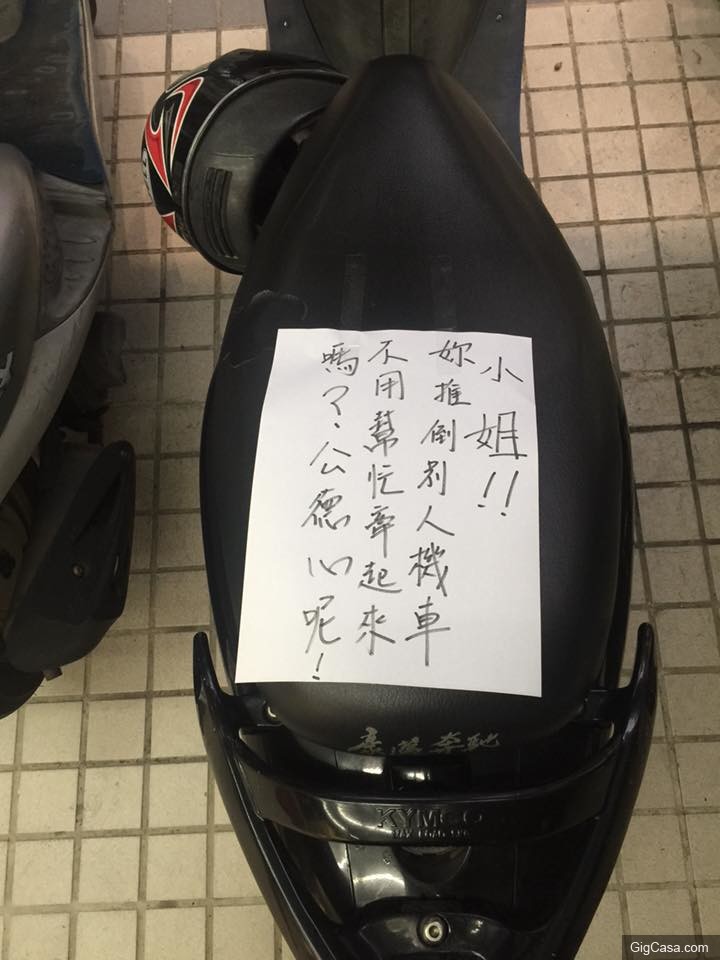 小姐!!
妳推倒別人機車
不用幫忙牽起來
嗎?公德心呢!
豪邁奔馳
KYMCO
MAX LOAD
GigCasa.com